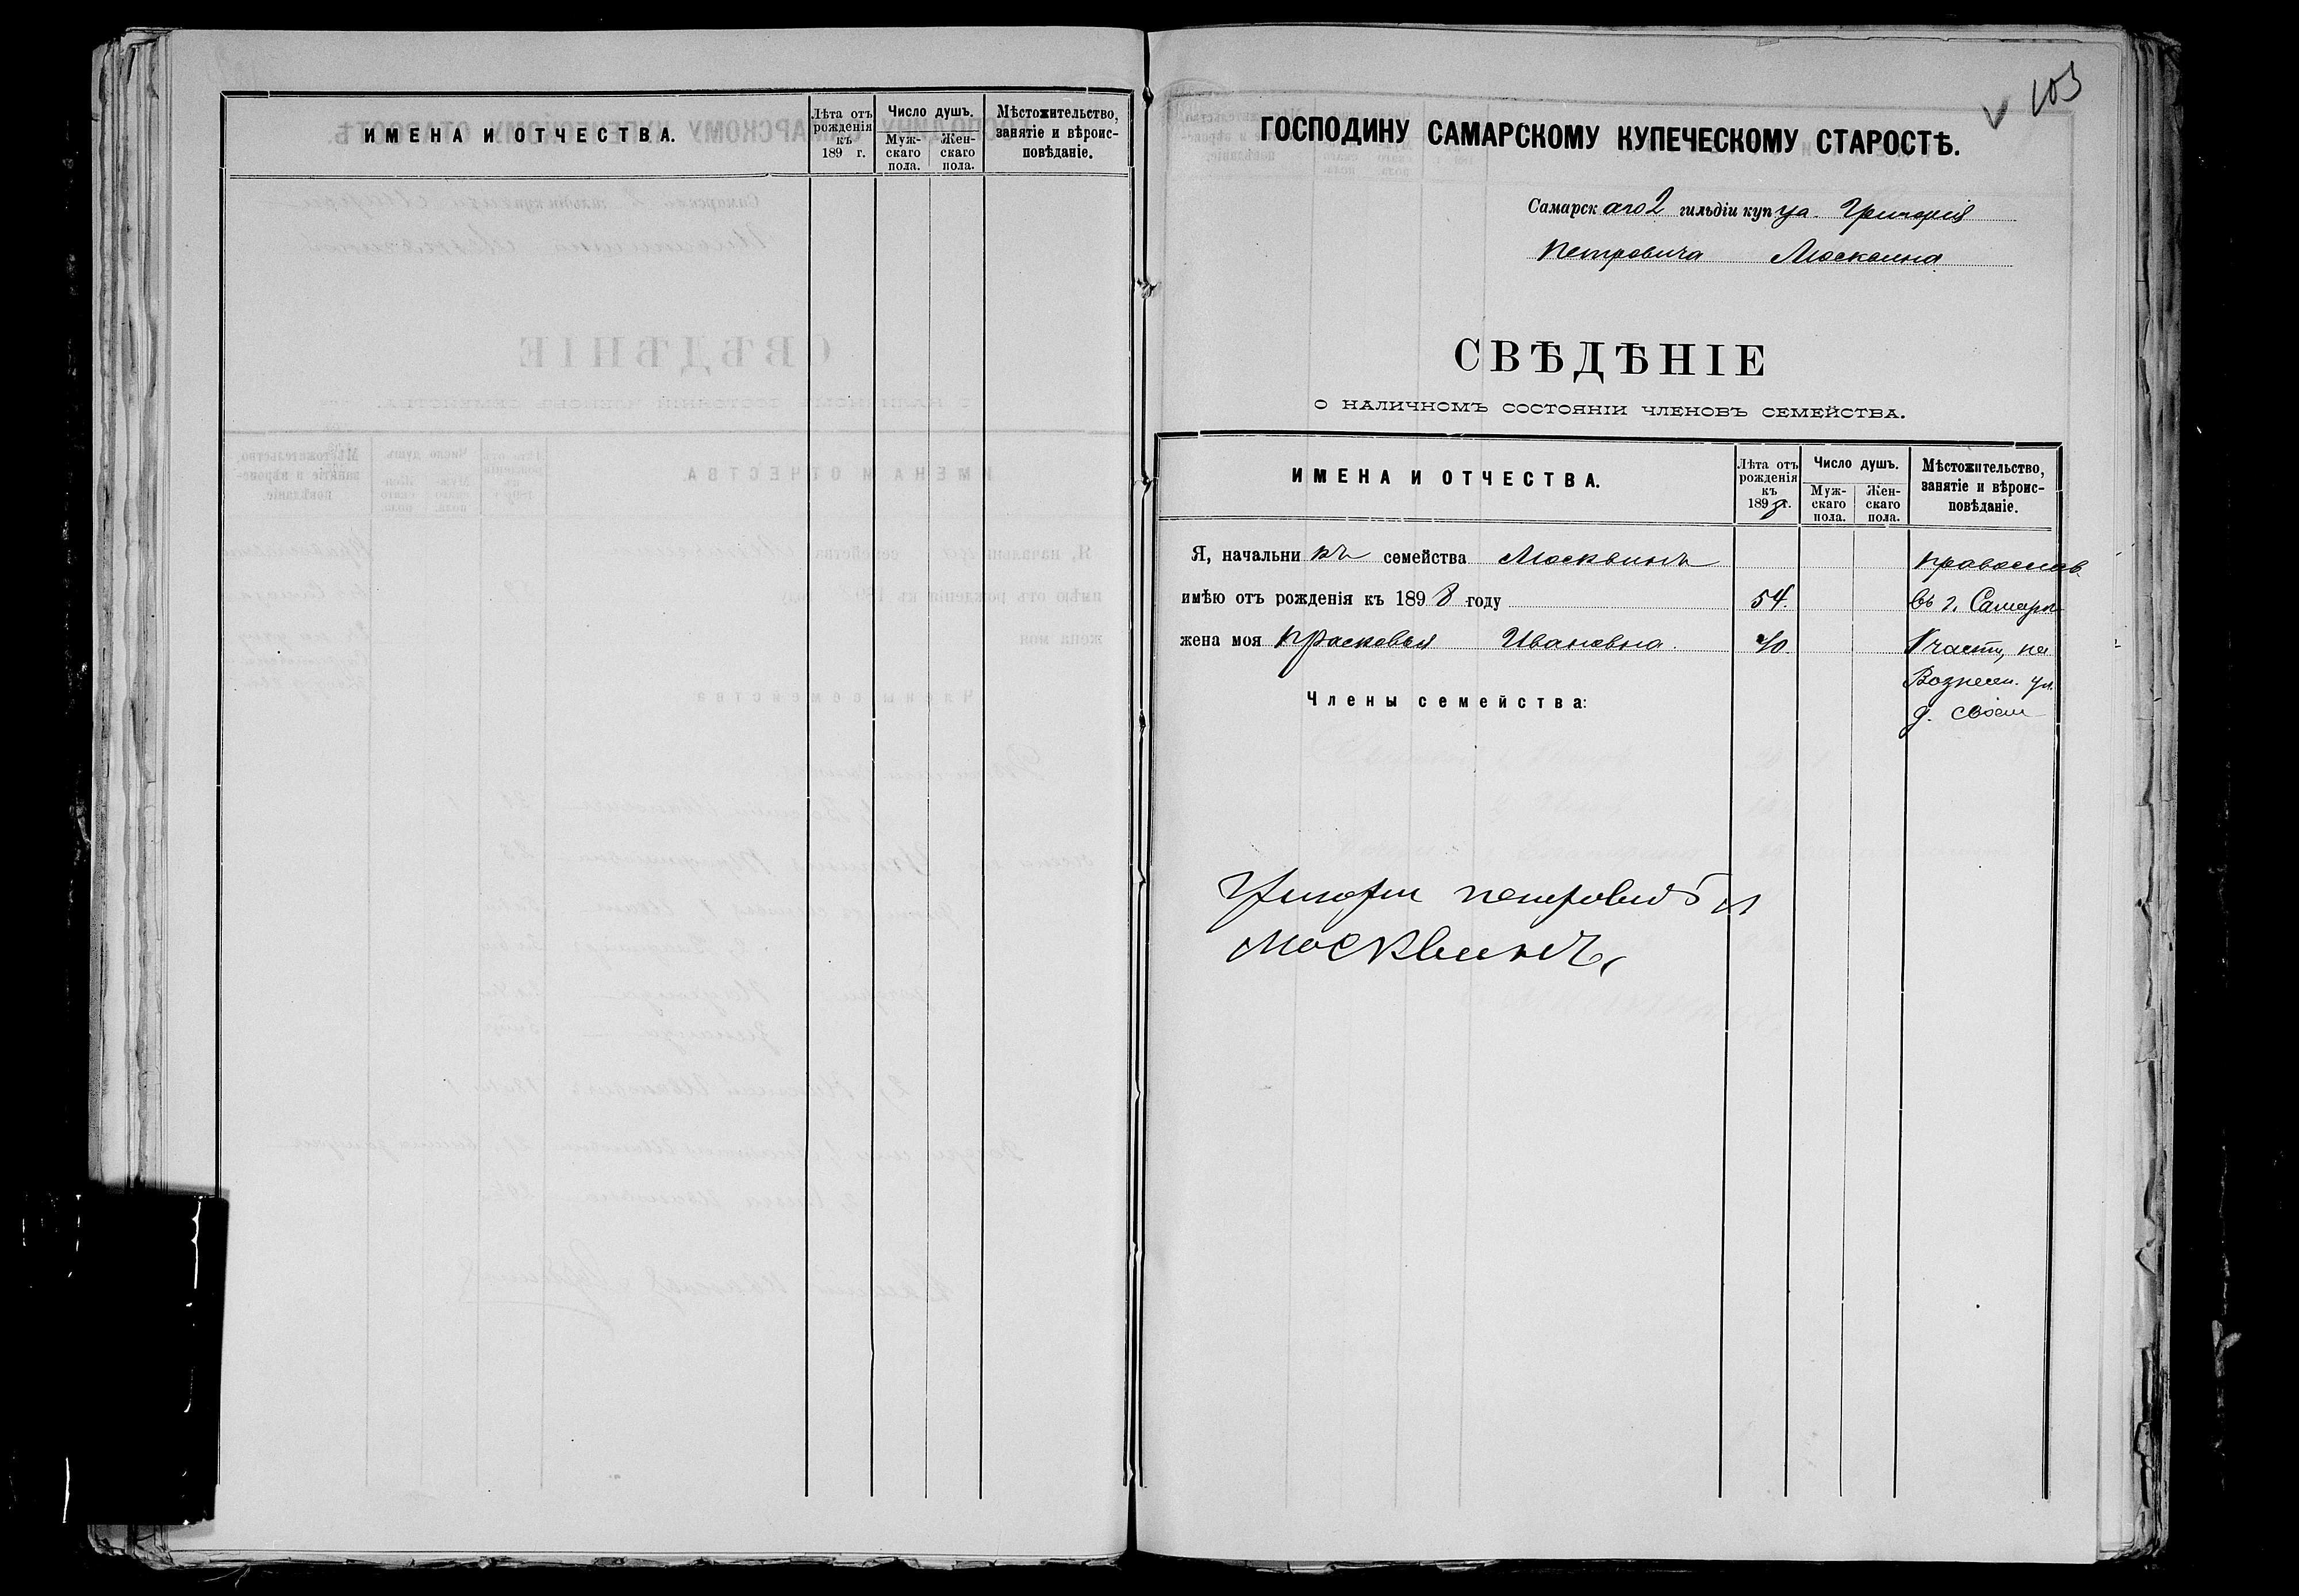 ИМЕНА И ОТЧЕСТВА.
Лѣта отъ рожденія къ 189 г.
Число душъ.
Мужскаго пола.
Женскаго пола.
Мѣстожительство, занятіе и вѣроисповѣданіе.
103
ГОСПОДИНУ САМАРСКОМУ КУПЕЧЕСКОМУ СТАРОСТѢ.
Самарскаго 2 гильдіи купца Григорія
Петровича Москвина
СВѢДѢНІЕ
О НАЛИЧНОМЪ СОСТОЯНІИ ЧЛЕНОВЪ СЕМЕЙСТВА.
ИМЕНА И ОТЧЕСТВА.
Лѣта отъ рожденія къ 1898 г.
Число душъ.
Мужскаго пола.
Женскаго пола.
Мѣстожительство, занятіе и вѣроисповѣданіе.
Я, начальникъ семейства Москвинъ православ.
имѣю отъ рожденія къ 1898 году 54. въ г. Самарѣ
жена моя Прасковья Ивановна. 40. части, на
Вознесен. ул.
Члены семейства:
д. свой
Григори петровичъ
Москвинъ